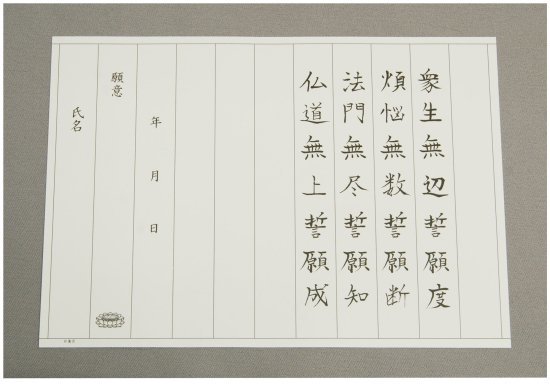 衆生無辺誓願度
煩悩無数誓願断
法門無尽誓願知
仏道無上誓願成
年 月 日
願意
氏名